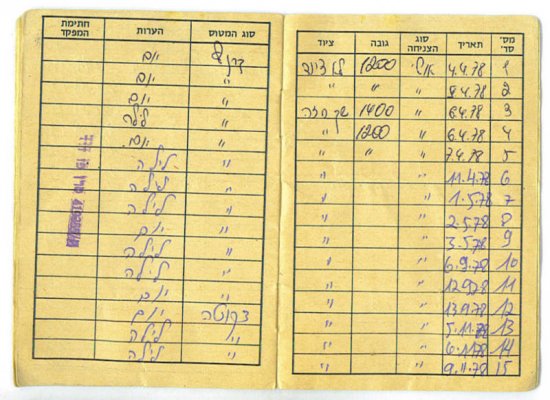 מס' סד' תאריך סוג הצניחה גובה ציוד
1 4.4.78 אוט' 1200 ללא ציוד
2 4.4.78 " " "
3 6.4.78 " 1400
4 6.4.78 " 1200 "
5 7.4.78 " " "
6 11.4.78 " "
7 1.5.78 " "
8 2.5.78 " "
9 3.5.78 " "
10 6.9.78 " "
11 12.9.78 " "
12 13.9.78 " "
13 5.11.78 " "
14 6.11.78 " "
15 9.11.78 " "
סוג המטוס הערות חתימת המפקד
יום
" יום
" יום
" לילה
" יום
" לילה
" לילה
" לילה
" יום
" לילה
" לילה
" יום
דקוטה יום
" לילה
" לילה